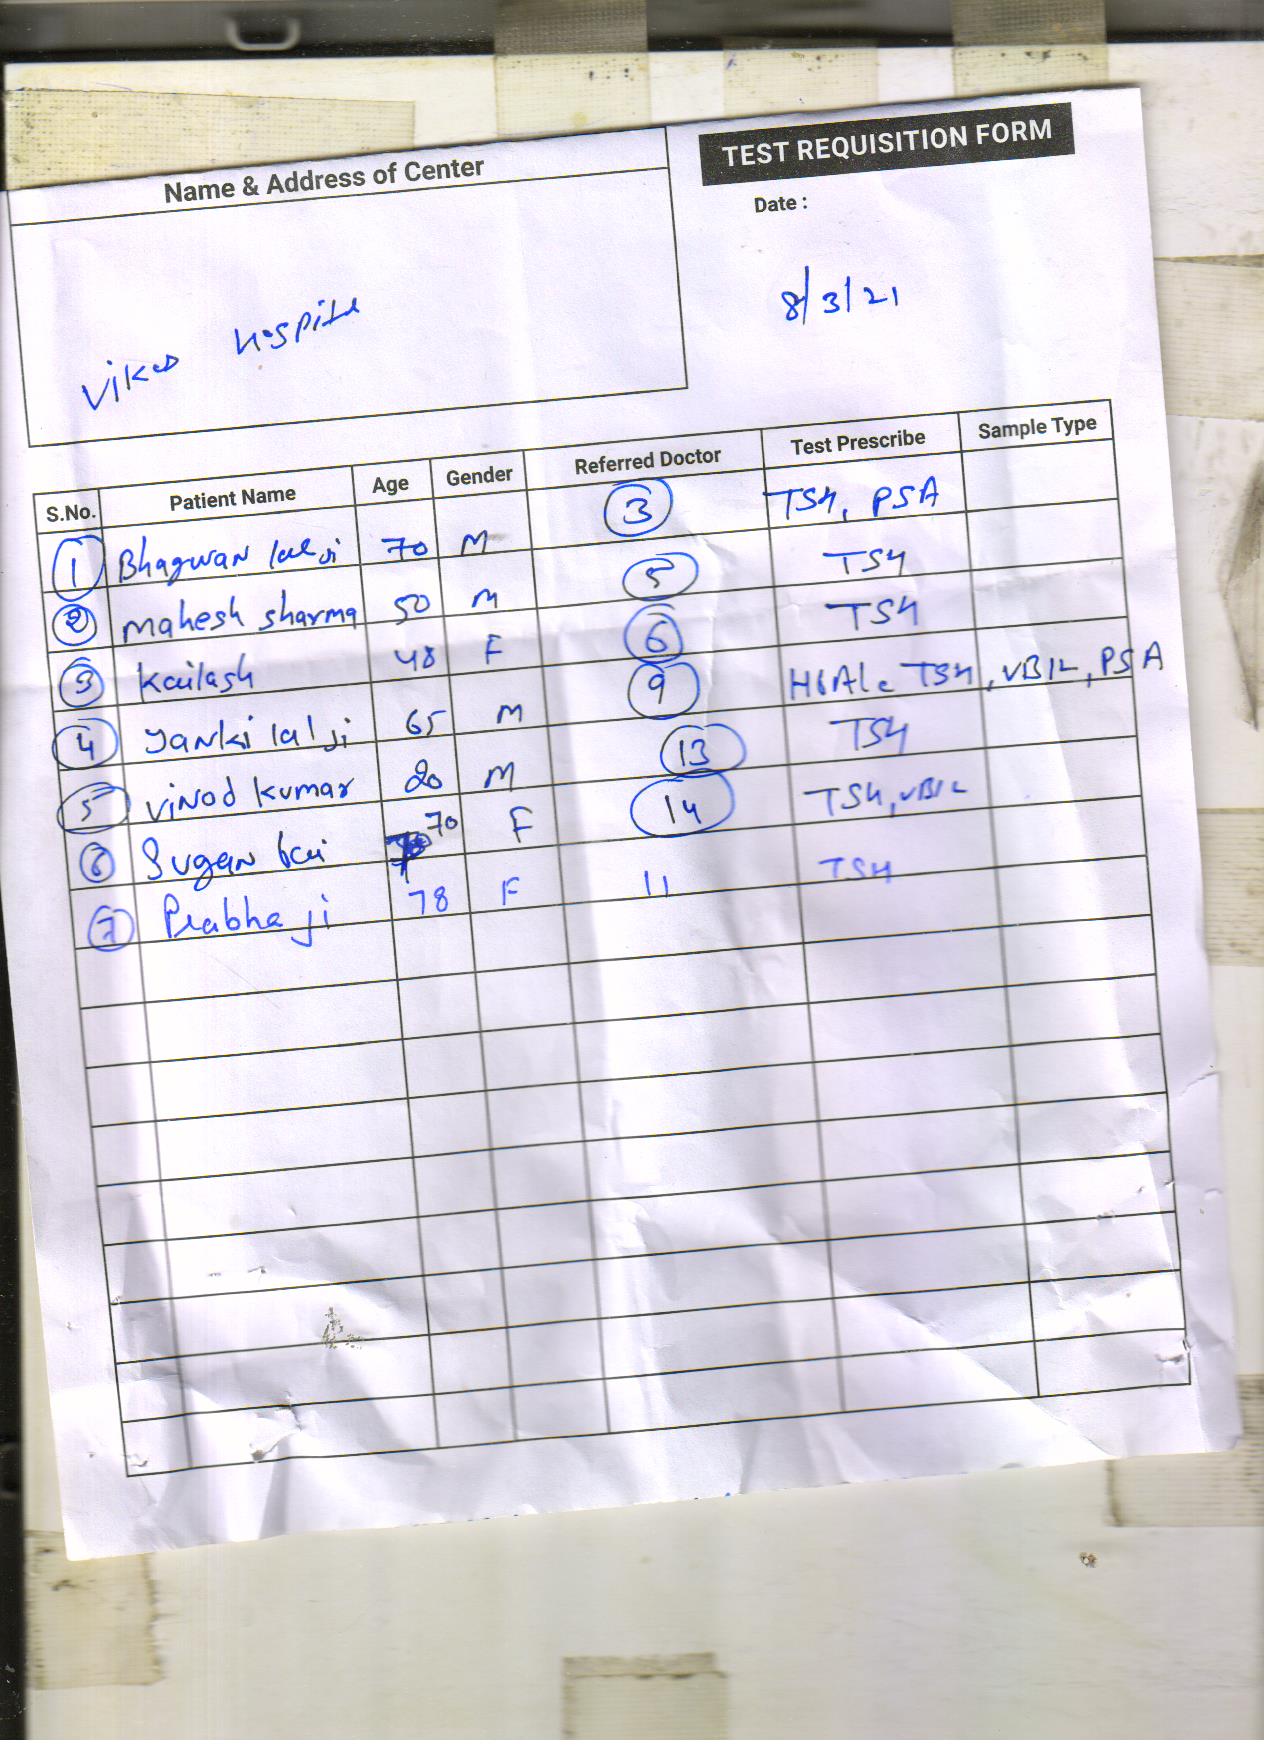 Name & Address of Center
TEST REQUISITION FORM
Date :
8/3/21
Vikas Hospital
S.No. Patient Name Age Gender Referred Doctor Test Prescribe Sample Type
1 Bhagwan lal ji 70 M 3 TSH, PSA
2 Mahesh Sharma 50 M 5 TSH
3 Kailash 48 F 6 TSH
4 Janki lal ji 65 M 9 HbA1c TSH, VB12, PSA
5 Vinod Kumar 20 M 13 TSH
6 Sugan bai 70 F 14 TSH, VB12
7 Prabha ji 78 F 11 TSH